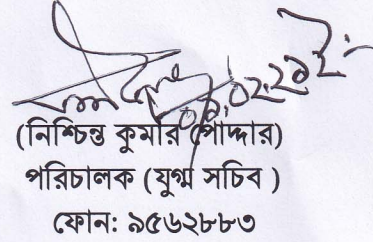 (নিশ্চিন্ত কুমার পোদ্দার)
পরিচালক (যুগ্ম সচিব )
ফোন: ৯৫৬২৮৮৩